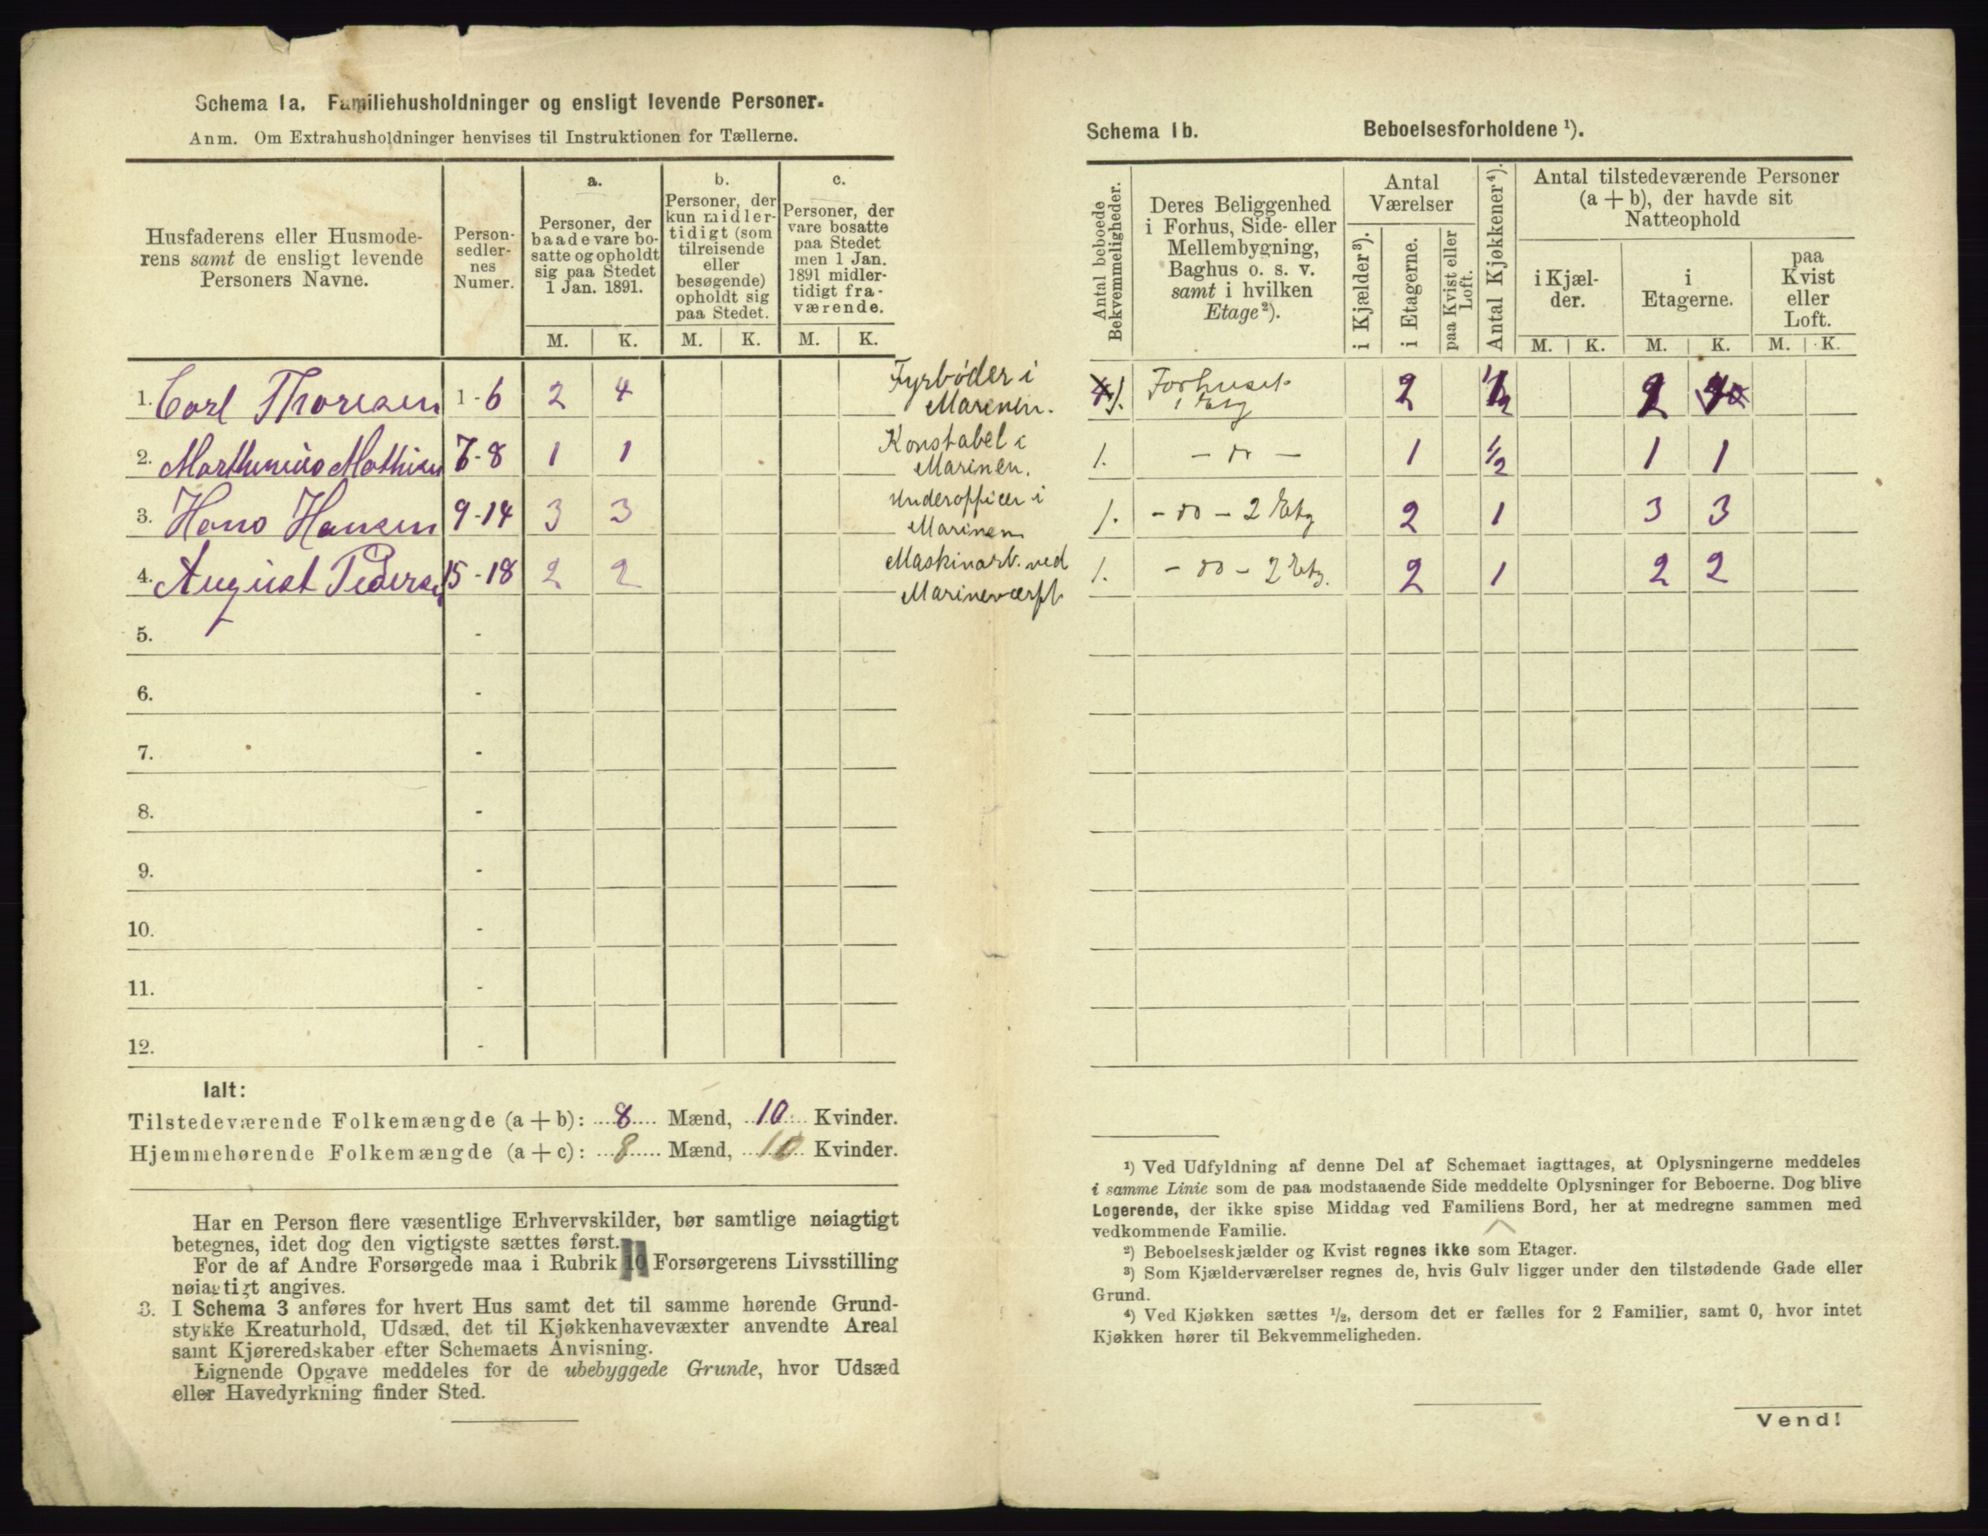 Schema 1a. Familiehusholdninger og ensligt levende Personer.
Anm. Om Extrahusholdninger henvises til Instruktionen for Tællerne.
Husfaderens eller Husmode-
rens samt de ensligt levende
Personers Navne.
Person-
sedler-
nes
Numer.
a.
Personer, der
baade vare bo-
satte og opholdt
sig paa Stedet
1 Jan. 1891.
b.
Personer, der
kun midler-
tidigt (som
tilreisende
eller
besøgende)
opholdt sig
paa Stedet.
c.
Personer, der
vare bosatte
paa Stedet
men 1 Jan.
1891 midler-
tidigt fra-
værende.
M. K. M. K. M. K.
1. Carl Thoresen 1-6 2 4 Fyrbøder i
Marinen.
2. Marthinius Mathisen 7-8 1 1 Konstabel i
Marinen.
3. Hans Hansen 9-14 3 3 Underofficer i
Marinen
4. August Peders 15-18 2 2 Maskinarb. ved
Marineværft
5. -
6. -
7. -
8. -
9. -
10. -
11. -
12. -
Ialt:
Tilstedeværende Folkemængde (a + b): 8 Mænd, 10 Kvinder.
Hjemmehørende Folkemængde (a + c): 8 Mænd, 10 Kvinder.
Har en Person flere væsentlige Erhvervskilder, bør samtlige nøiagtigt
betegnes, idet dog den vigtigste sættes først.
For de af Andre Forsørgede maa i Rubrik 10 Forsørgerens Livsstilling
nøiagtigt angives.
3. I Schema 3 anføres for hvert Hus samt det til samme hørende Grund-
stykke Kreaturhold, Udsæd, det til Kjøkkenhavevæxter anvendte Areal
samt Kjøreredskaber efter Schemaets Anvisning.
Lignende Opgave meddeles for de ubebyggede Grunde, hvor Udsæd
eller Havedyrkning finder Sted.
Schema 1b. Beboelsesforholdene ¹).
Antal beboede
Bekvemmeligheder.
Deres Beliggenhed
i Forhus, Side- eller
Mellembygning,
Baghus o. s. v.
samt i hvilken
Etage ²).
Antal
Værelser
i Kjælder ³).
i Etagerne.
paa Kvist eller
Loft.
Antal Kjøkkener ⁴).
Antal tilstedeværende Personer
(a + b), der havde sit
Natteophold
i Kjæl-
der.
i
Etagerne.
paa
Kvist
eller
Loft.
M. K. M. K. M. K.
1. Forhuset 2 1/2 2
1 Etg
1. - do - 1 1/2 1 1
1. - do - 2 Etg 2 1 3 3
1. - do - 2 Etg. 2 1 2 2
¹) Ved Udfyldning af denne Del af Schemaet iagttages, at Oplysningerne meddeles
i samme Linie som de paa modstaaende Side meddelte Oplysninger for Beboerne. Dog blive
Logerende, der ikke spise Middag ved Familiens Bord, her at medregne sammen med
vedkommende Familie.
²) Beboelseskjælder og Kvist regnes ikke som Etager.
³) Som Kjælderværelser regnes de, hvis Gulv ligger under den tilstødende Gade eller
Grund.
⁴) Ved Kjøkken sættes ¹/₂, dersom det er fælles for 2 Familier, samt 0, hvor intet
Kjøkken hører til Bekvemmeligheden.
Vend!